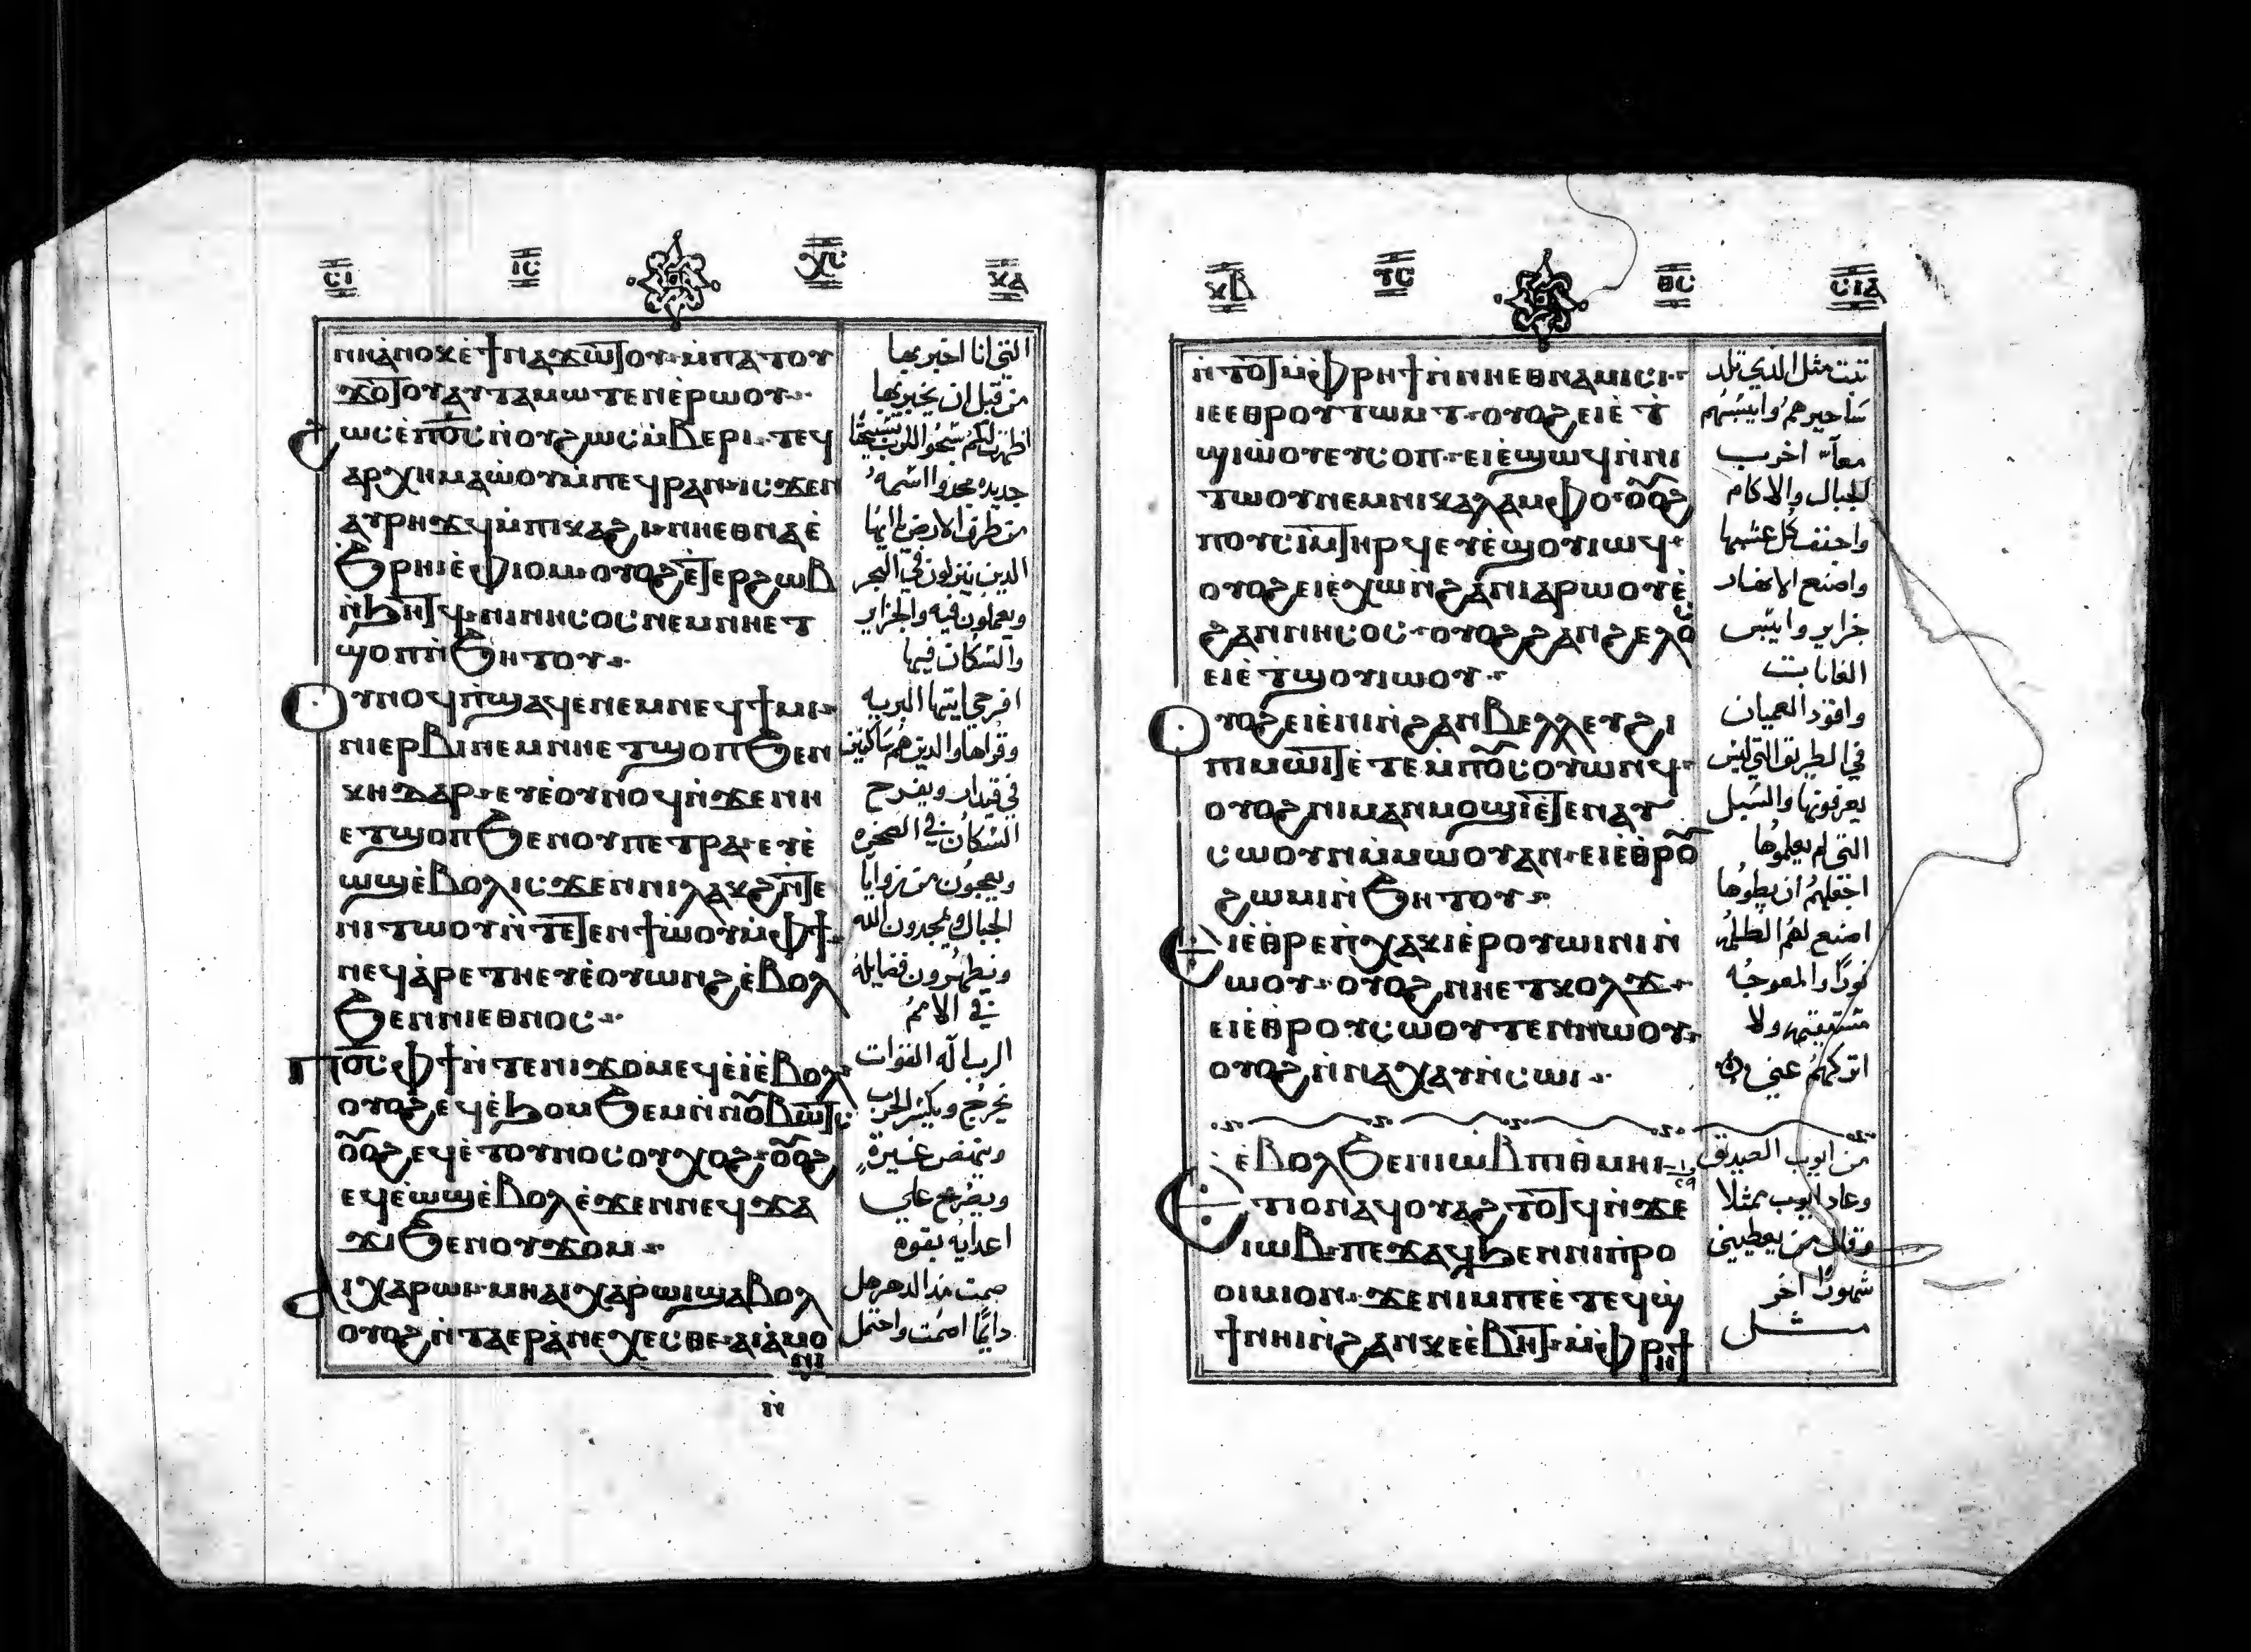 ⲥⲓ ⲓⲥ ⲭⲥ ⲕⲁ
ⲛⲏⲁⲛⲟⲕⲉϯⲛⲁϫⲱⲧⲟⲩ ⲙⲡⲁⲧⲟⲩ
ϫⲟⲧⲟⲩⲁⲩⲧⲁⲙⲱⲧⲉⲛⲉⲣⲱⲟⲩ
ϩⲱⲥⲉⲡⲟⲥⲛⲟⲩϩⲱⲥⲙⲃⲉⲣⲓ ⲧⲉϥ
ⲁⲣⲭⲏⲙⲁⲱⲟⲩⲙⲡⲉϥⲣⲁⲛ ⲓⲥϫⲉⲛ
ⲁⲩⲣⲏϫϥⲙⲡⲓⲕⲁϩⲓ ⲛⲏⲉⲑⲛⲁⲉ
ϧⲣⲏⲓⲉⲫⲓⲟⲙ ⲟⲩⲟϩⲉⲧⲉⲣϩⲱⲃ
ⲛϧⲏⲧϥ ⲛⲓⲛⲏⲥⲟⲥⲛⲉⲙⲛⲏⲉⲧ
ϣⲟⲡⲛϧⲏⲧⲟⲩ
ⲟⲩⲛⲟϥⲡϣⲁϥⲉⲛⲉⲙⲛⲉϥϯⲙⲓ
ⲛⲓⲉⲣⲃⲓⲛⲉⲙⲛⲏⲉⲧϣⲟⲡϧⲉⲛ
ⲕⲏⲇⲁⲣ ⲉⲩⲉⲟⲩⲛⲟϥⲛϫⲉⲛⲏ
ⲉⲧϣⲟⲡϧⲉⲛⲟⲩⲡⲉⲧⲣⲁ ⲉⲩⲉ
ⲱϣⲉⲃⲟⲗⲓⲥϫⲉⲛⲛⲓⲗⲁⲕϩⲛⲧⲉ
ⲛⲓⲧⲱⲟⲩⲛⲧⲉⲧⲉⲛϯⲱⲟⲩⲙⲫϯ
ⲛⲉϥⲁⲣⲉⲧⲏⲉⲩⲉⲟⲩⲱⲛϩⲉⲃⲟⲗ
ϧⲉⲛⲛⲓⲉⲑⲛⲟⲥ
ⲡⲟⲥⲫϯⲛⲧⲉⲛⲓϫⲟⲙⲉϥⲉⲓⲉⲃⲟⲗ
ⲟⲩⲟϩⲉϥⲉϧⲟⲙϧⲉⲙⲛⲡⲟⲃⲱⲧⲥ
ⲟⲟϩⲉϥⲉⲧⲟⲩⲛⲟⲥⲟⲩⲭⲟϩ ⲟⲟϩ
ⲉϥⲉⲱϣⲉⲃⲟⲗⲉϫⲉⲛⲛⲉϥϫⲁ
ϫⲓϧⲉⲛⲟⲩϫⲟⲙ
ⲁⲓⲭⲁⲣⲱⲓ ⲙⲏⲁⲓⲭⲁⲣⲱⲓϣⲁⲃⲟⲗ
ⲟⲩⲟϩⲛⲧⲁⲉⲣⲁⲛⲉⲭⲉⲥⲑⲉ ⲁⲓⲁⲙⲟ
ⲛⲓ
التي انا اخبر بها
من قبل ان يخبر بها
جديده مجدوا اسمه
من طرف الارض يا ايها
الدين ينزلون في البحر
ويعملون فيه والجزاير
والسكان فيها
افرحي ايتها البريه
وقراها والدين هم ساكنين
في قيدار ويفرح
السكان في الصخره
ويصيحون من زوايا
الجبال ويمجدون الله
ويظهرون فضايله
في الامم
الرب اله القوات
يخرج ويكسر الحرب
وينهض غيرة
ويصرخ علي
اعدايه بقوه
صمت مند الدهر هل
دايمًا اصمت واحتمل
ⲕⲃ ⲩⲥ ⲑⲥ ⲥⲓⲁ
ⲛⲧⲟⲧⲙⲫⲣⲏϯⲛⲛⲏⲉⲑⲛⲁⲙⲓⲥⲓ
ⲓⲉⲉⲑⲣⲟⲩⲧⲱⲙⲧ ⲟⲩⲟϩⲉⲓⲉⲧ
ϣⲓⲱⲟⲩⲉⲩⲥⲟⲡ ⲉⲓⲉϣⲱϥⲛⲛⲓ
ⲧⲱⲟⲩⲛⲉⲙⲛⲓⲕⲁⲗⲁⲙⲫⲟ ⲟⲟϩ
ⲡⲟⲩⲥⲓⲙⲧⲏⲣϥⲉⲩⲉϣⲟⲩⲓⲱϥ
ⲟⲩⲟϩⲉⲓⲉⲭⲱⲛϩⲁⲛⲓⲁⲣⲱⲟⲩⲉ
ϩⲁⲛⲛⲏⲥⲟⲥ ⲟⲩⲟϩϩⲁⲛϩⲉⲗⲟⲥ
ⲉⲓⲉⲧϣⲟⲩⲓⲱⲟⲩ
ⲟⲩⲟϩⲉⲓⲉⲛⲓⲛϩⲁⲛⲃⲉⲗⲗⲉⲩϩⲓ
ⲡⲓⲙⲱⲓⲧⲉⲧⲉⲙⲡⲟⲥⲟⲩⲱⲛϥ
ⲟⲩⲟϩⲛⲓⲙⲁⲛⲙⲟϣⲓⲉⲧⲉⲛⲁⲩ
ⲥⲱⲟⲩⲛⲙⲙⲱⲟⲩⲁⲛ ⲉⲓⲉⲑⲣⲟ
ϩⲱⲙⲓⲛϧⲏⲧⲟⲩ
ⲉⲓⲉⲑⲣⲉⲛⲭⲁⲕⲓⲉⲣⲟⲩⲱⲓⲛⲓⲛ
ⲱⲟⲩ ⲟⲩⲟϩⲛⲏⲉⲧⲕⲟⲗϫ
ⲉⲓⲉⲑⲣⲟⲩⲥⲱⲟⲩⲧⲉⲛⲛⲱⲟⲩ
ⲟⲩⲟϩⲛⲛⲁⲭⲁⲩⲛⲥⲱⲓ
ⲉⲃⲟⲗϧⲉⲛⲓⲱⲃⲡⲓⲑⲙⲏⲓ
ⲉⲧⲓⲟⲛⲁϥⲟⲩⲁϩⲧⲟⲧϥⲛϫⲉ
ⲓⲱⲃ ⲡⲉϫⲁϥϧⲉⲛⲛⲓⲡⲣⲟ
ⲟⲓⲙⲓⲟⲛ ϫⲉⲛⲓⲙⲡⲉⲉⲧⲉϥϣ
ϯⲛⲏⲓⲛϩⲁⲛⲕⲉⲉⲃⲏⲧ ⲙⲫⲣⲏϯ
مثل الدي تلد
معاً اخرب
الجبال والاكام
واجفف كل عشبها
واصنع الانهار
جزاير وايبس
الغابات
واقود العميان
في الطريق التي ليس
يعرفونها والسبل
التي لم يعلموها
اجعلهم ان يطوها
اصنع لهم الظلمه
نورًا والمعوجه
مستقيمه ولا
اتركهم عني
من ايوب الصديق
وعاد ايوب مثلا
وقال من يعطيني
شهورًا اخر
مثل